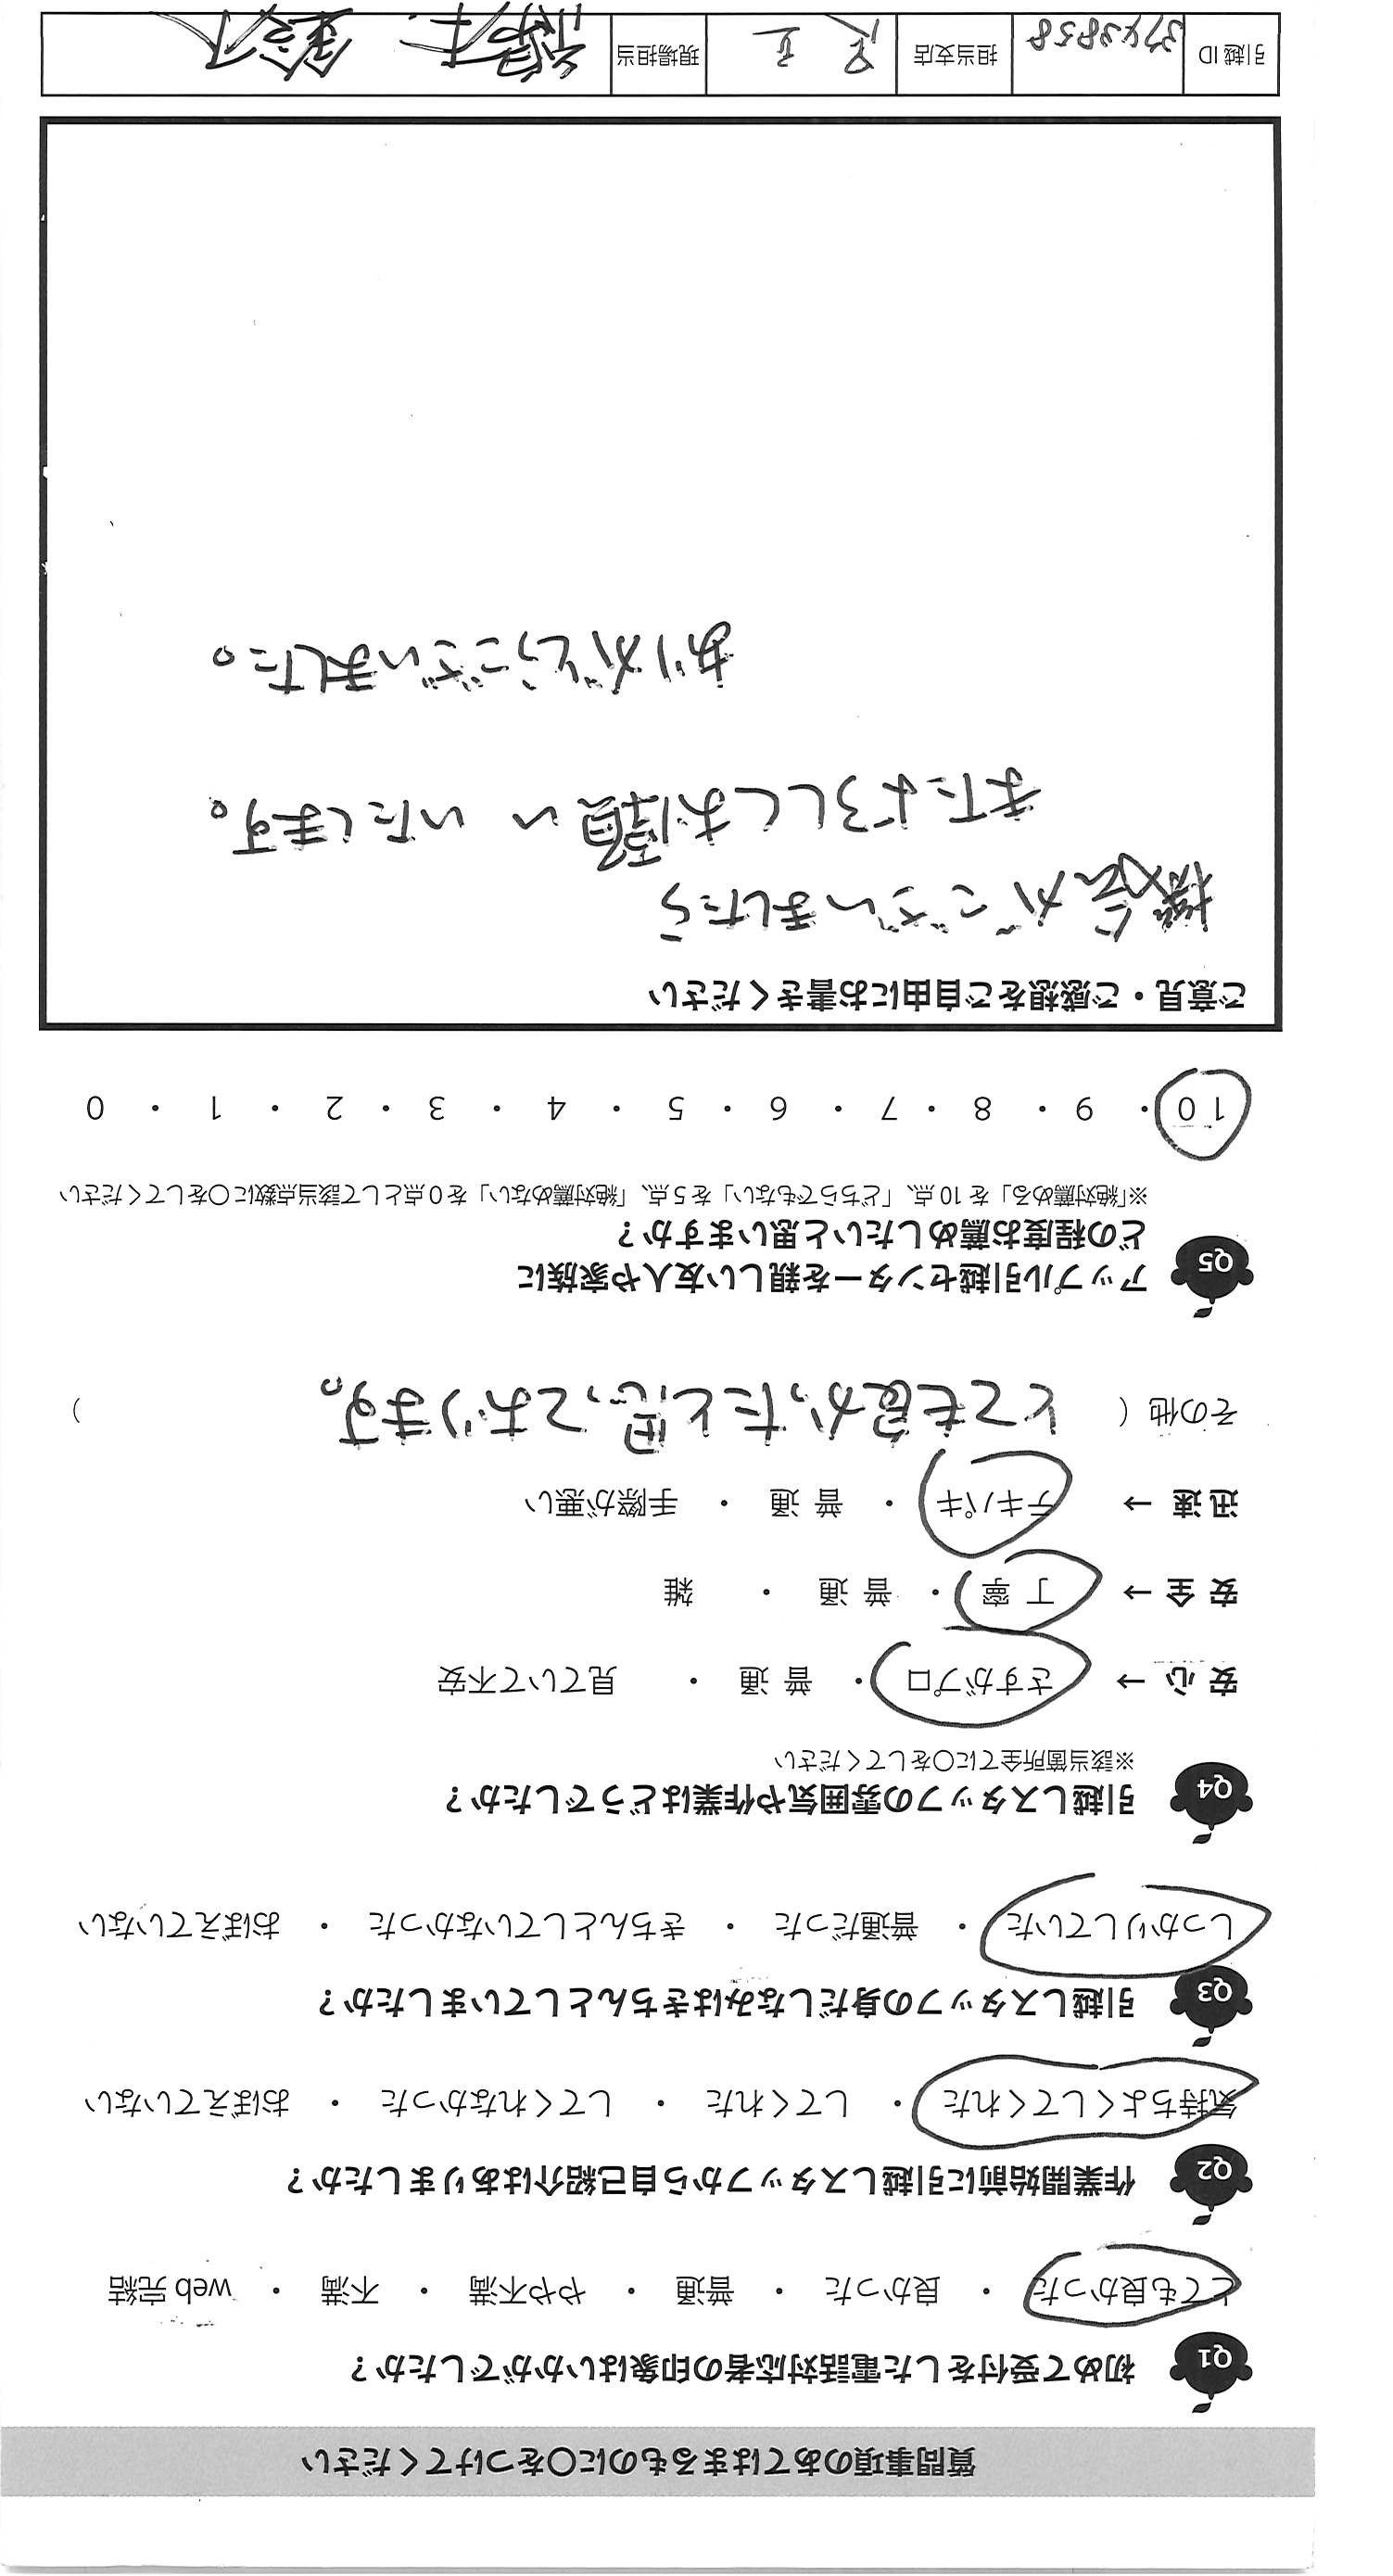 質問事項のあてはまるものに〇をつけてください
Q1 初めて受付をした電話対応者の印象はいかがでしたか？
とても良かった ・ 良かった ・ 普通 ・ やや不満 ・ 不満 ・ web完結
Q2 作業開始前に引越しスタッフから自己紹介はありましたか？
気持ちよくしてくれた ・ してくれた ・ してくれなかった ・ おぼえていない
Q3 引越しスタッフの身だしなみはきちんとしていましたか？
しっかりしていた ・ 普通だった ・ きちんとしていなかった ・ おぼえていない
Q4 引越しスタッフの雰囲気や作業はどうでしたか？
※該当箇所全てに〇をしてください
安心 → さすがプロ ・ 普通 ・ 見ていて不安
安全 → 丁寧 ・ 普通 ・ 雑
迅速 → テキパキ ・ 普通 ・ 手際が悪い
その他（ とても良かったと思っております。 ）
Q5 アップル引越センターを親しい友人や家族に
どの程度お薦めしたいと思いますか？
※「絶対薦める」を10点、「どちらでもない」を5点、「絶対薦めない」を0点として該当点数に〇をしてください
10 ・ 9 ・ 8 ・ 7 ・ 6 ・ 5 ・ 4 ・ 3 ・ 2 ・ 1 ・ 0
ご意見・ご感想をご自由にお書きください
機会がございましたら
またよろしくお願いいたします。
ありがとうございました。
引越ID 3743858 担当支店 足立 現場担当